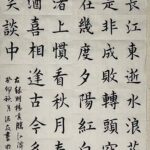 長江東逝水浪花
是非成敗轉頭空
在幾度夕陽紅白
渚上慣看秋月春
酒喜相逢古今多
笑談中
右錄明楊慎臨江仙
癸卯秋月